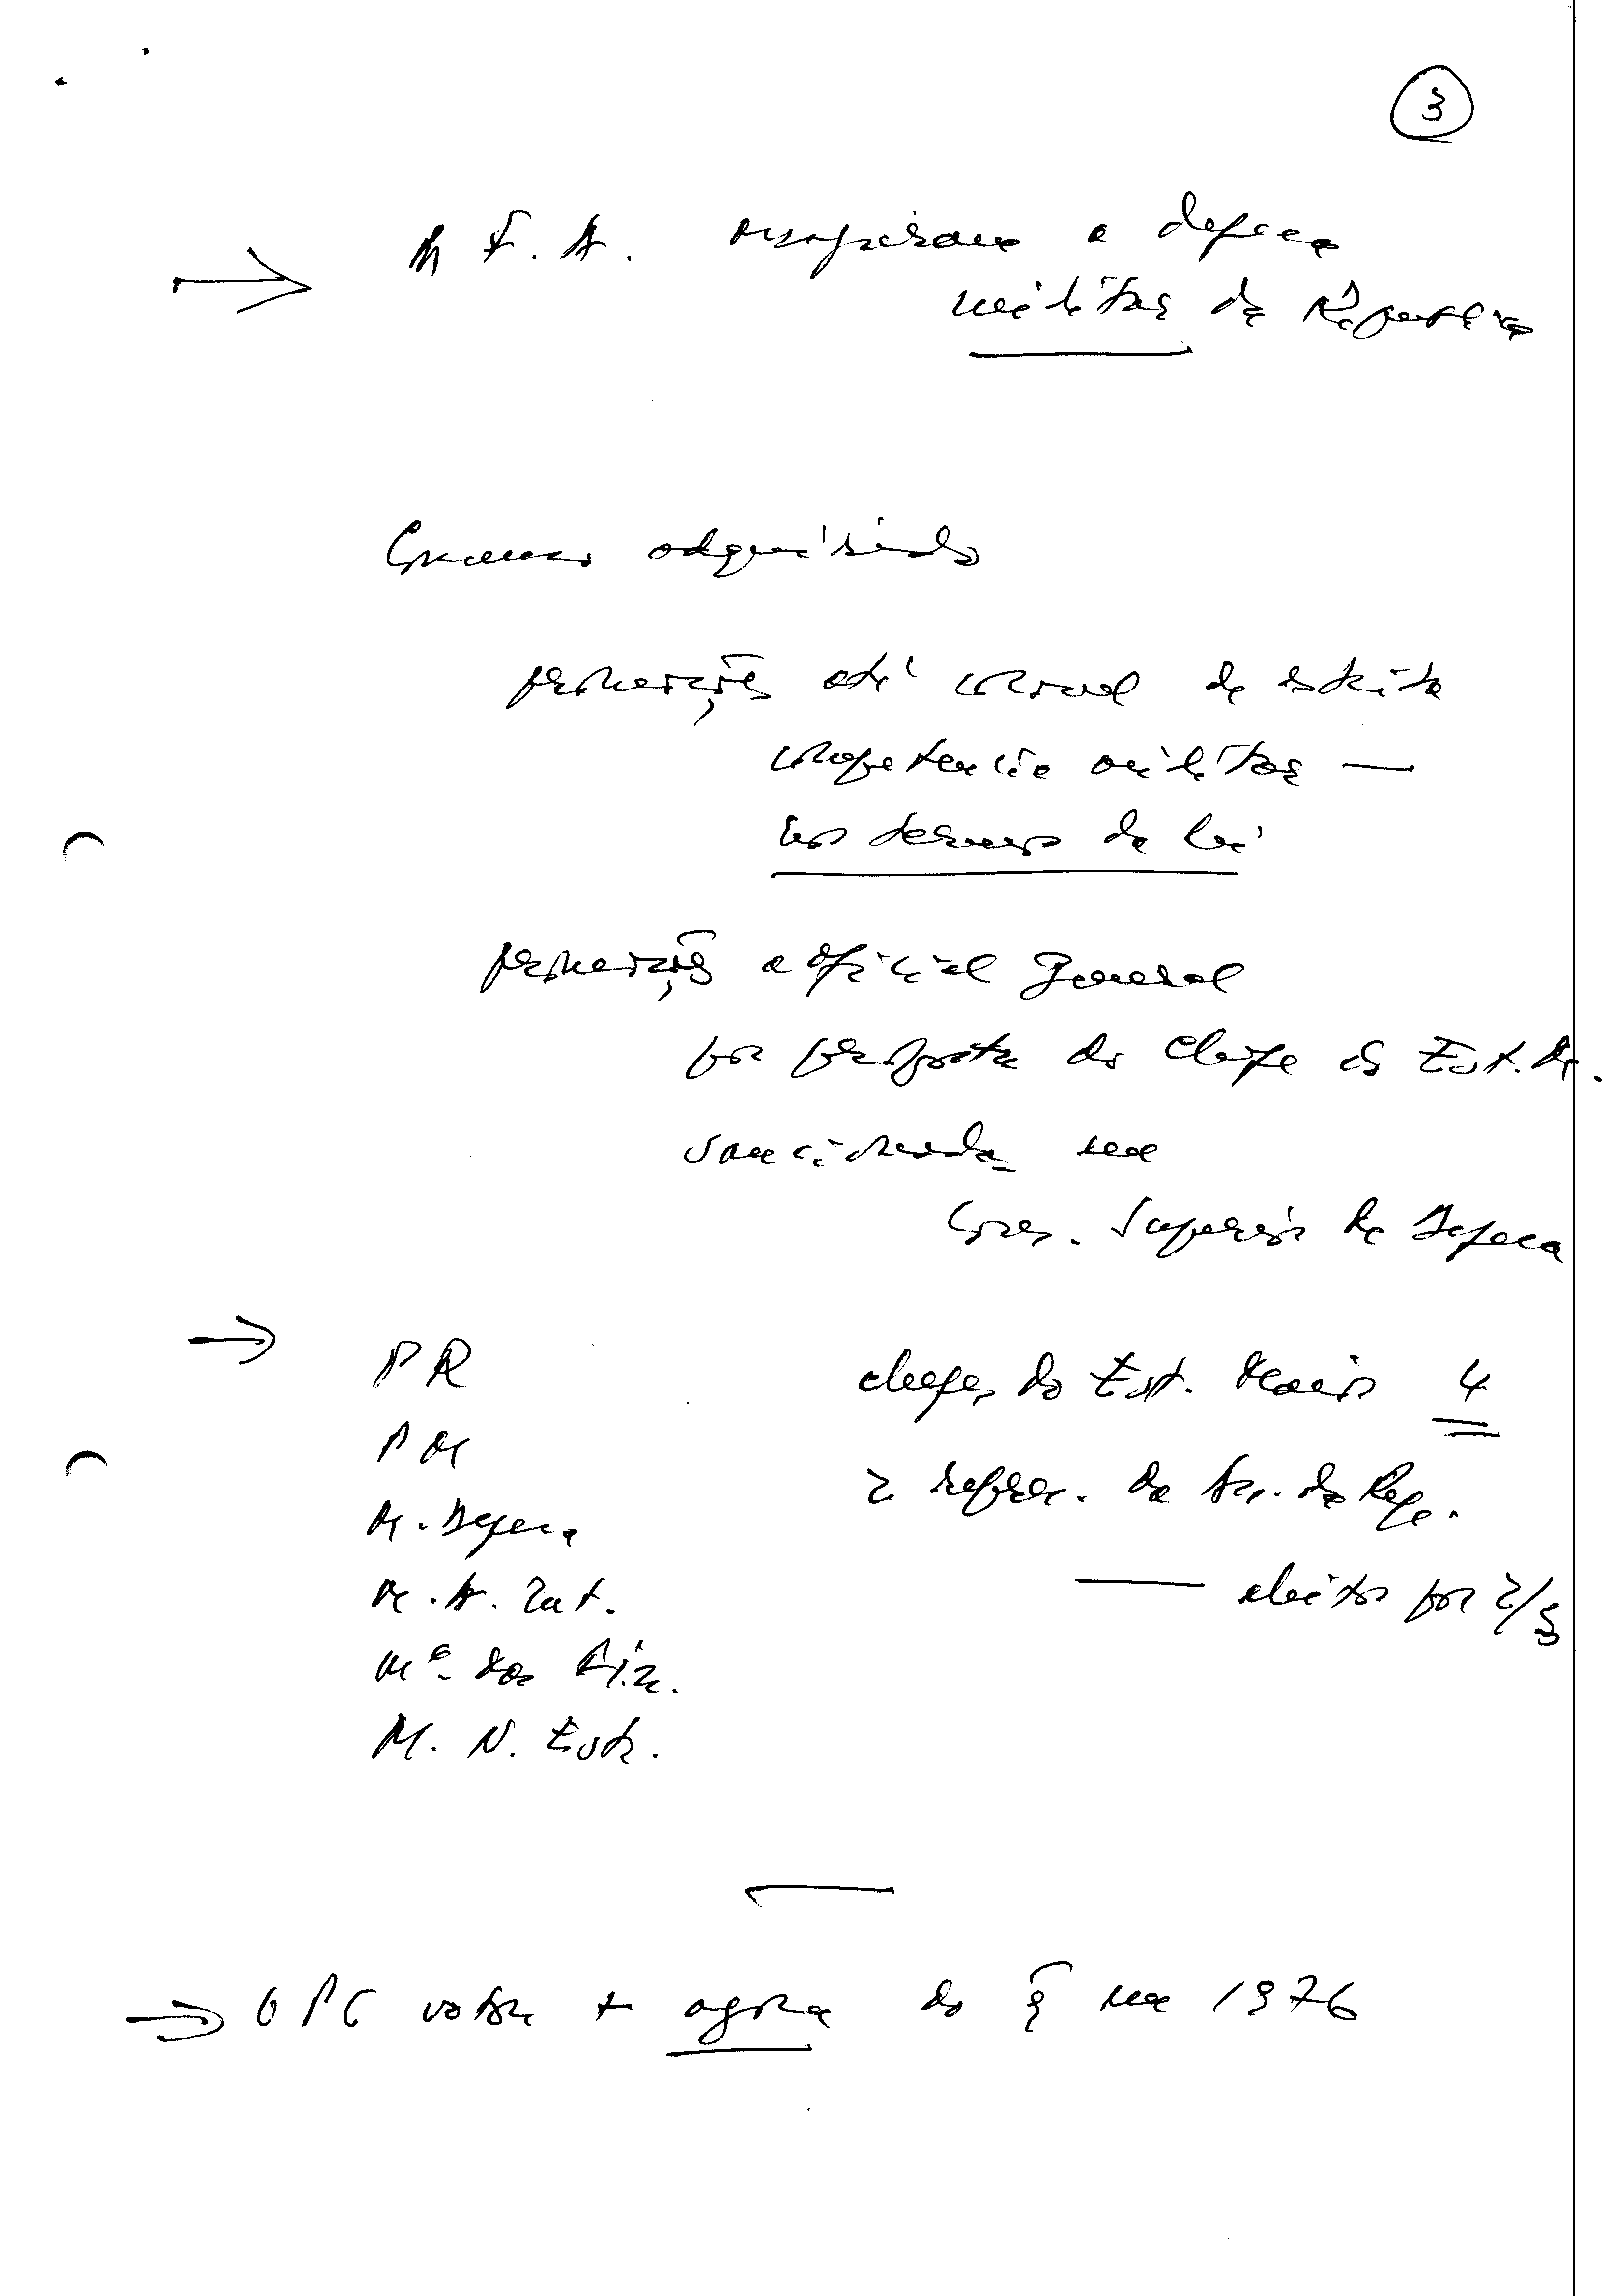 3
→ As F. A. asseguram a defesa
militar da República
Consenso adquirido
promoções até coronel da estrita
competência militar —
nos termos da lei
promoções a oficial general
por proposta do Chefe do Est. M.
sancionada no
Cons. Superior de Defesa
→ PR
chefes do Est. Maior 4
PM
2 repres. da As. da Rep.
M. Defesa
— eleitos por 2/3
M. A. Int.
Mº das Fin.
M. N. Estr.
⇒ O PC votou + agora do q̃ em 1976